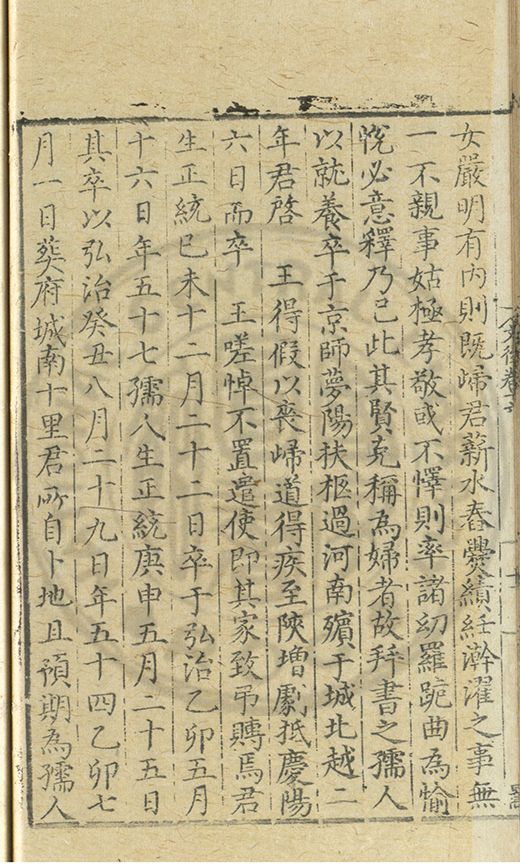 女嚴明有內則既歸君薪水舂爨績紝澣濯之事無
一不親事姑極孝敬或不懌則率諸幼羅跪曲為愉
悅必意釋乃已此其賢克稱為婦者故并書之孺人
以就養卒于京師夢陽扶柩過河南殯于城北越二
年君啓　王得假以喪歸道得疾至陝增劇抵慶陽
六日而卒　王嗟悼不置遣使即其家致弔賻焉君
生正統己未十二月二十二日卒于弘治乙卯五月
十六日年五十七孺人生正統庚申五月二十五日
其卒以弘治癸丑八月二十九日年五十四乙卯七
月一日葬府城南十里君所自卜地且預期為孺人